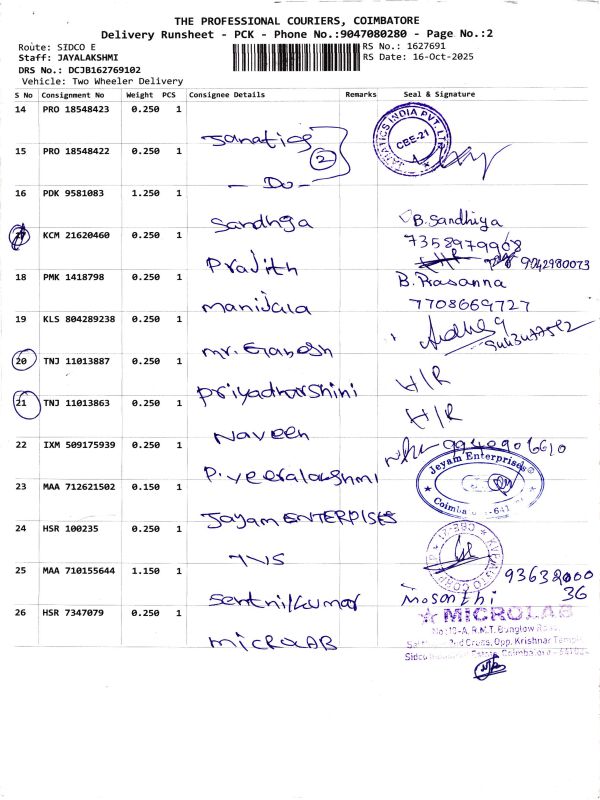 THE PROFESSIONAL COURIERS, COIMBATORE
Delivery Runsheet - PCK - Phone No.:9047080280 - Page No.:2
Route: SIDCO E
RS No.: 1627691
Staff: JAYALAKSHMI
RS Date: 16-Oct-2025
DRS No.: DCJB162769102
Vehicle: Two Wheeler Delivery
S No Consignment No Weight PCS Consignee Details Remarks Seal & Signature
14 PRO 18548423 0.250 1
Janatics
2
JANATICS INDIA PVT. LTD.
CBE-21
15 PRO 18548422 0.250 1
- Do -
16 PDK 9581083 1.250 1
Sandhya
B. Sandhiya
7358979908
17 KCM 21620460 0.250 1
Prajith
9042980073
18 PMK 1418798 0.250 1
B. Prasanna
manijala
7708669727
19 KLS 804289238 0.250 1
mr. Ganesh
20 TNJ 11013887 0.250 1
priyadharshini
H/R
21 TNJ 11013863 0.250 1
Naveen
H/R
22 IXM 509175939 0.250 1
P. veeralakshmi
Jeyam Enterprises
Coimb
23 MAA 712621502 0.150 1
Jayam ENTERPISES
24 HSR 100235 0.250 1
TVS
CBE-21
25 MAA 710155644 1.150 1
9363200036
Senthilkumar
26 HSR 7347079 0.250 1
MICROLAB
MICROLAB
No:10-A, R.M.T. Bunglow Road,
2nd Cross, Opp. Krishnar Temple